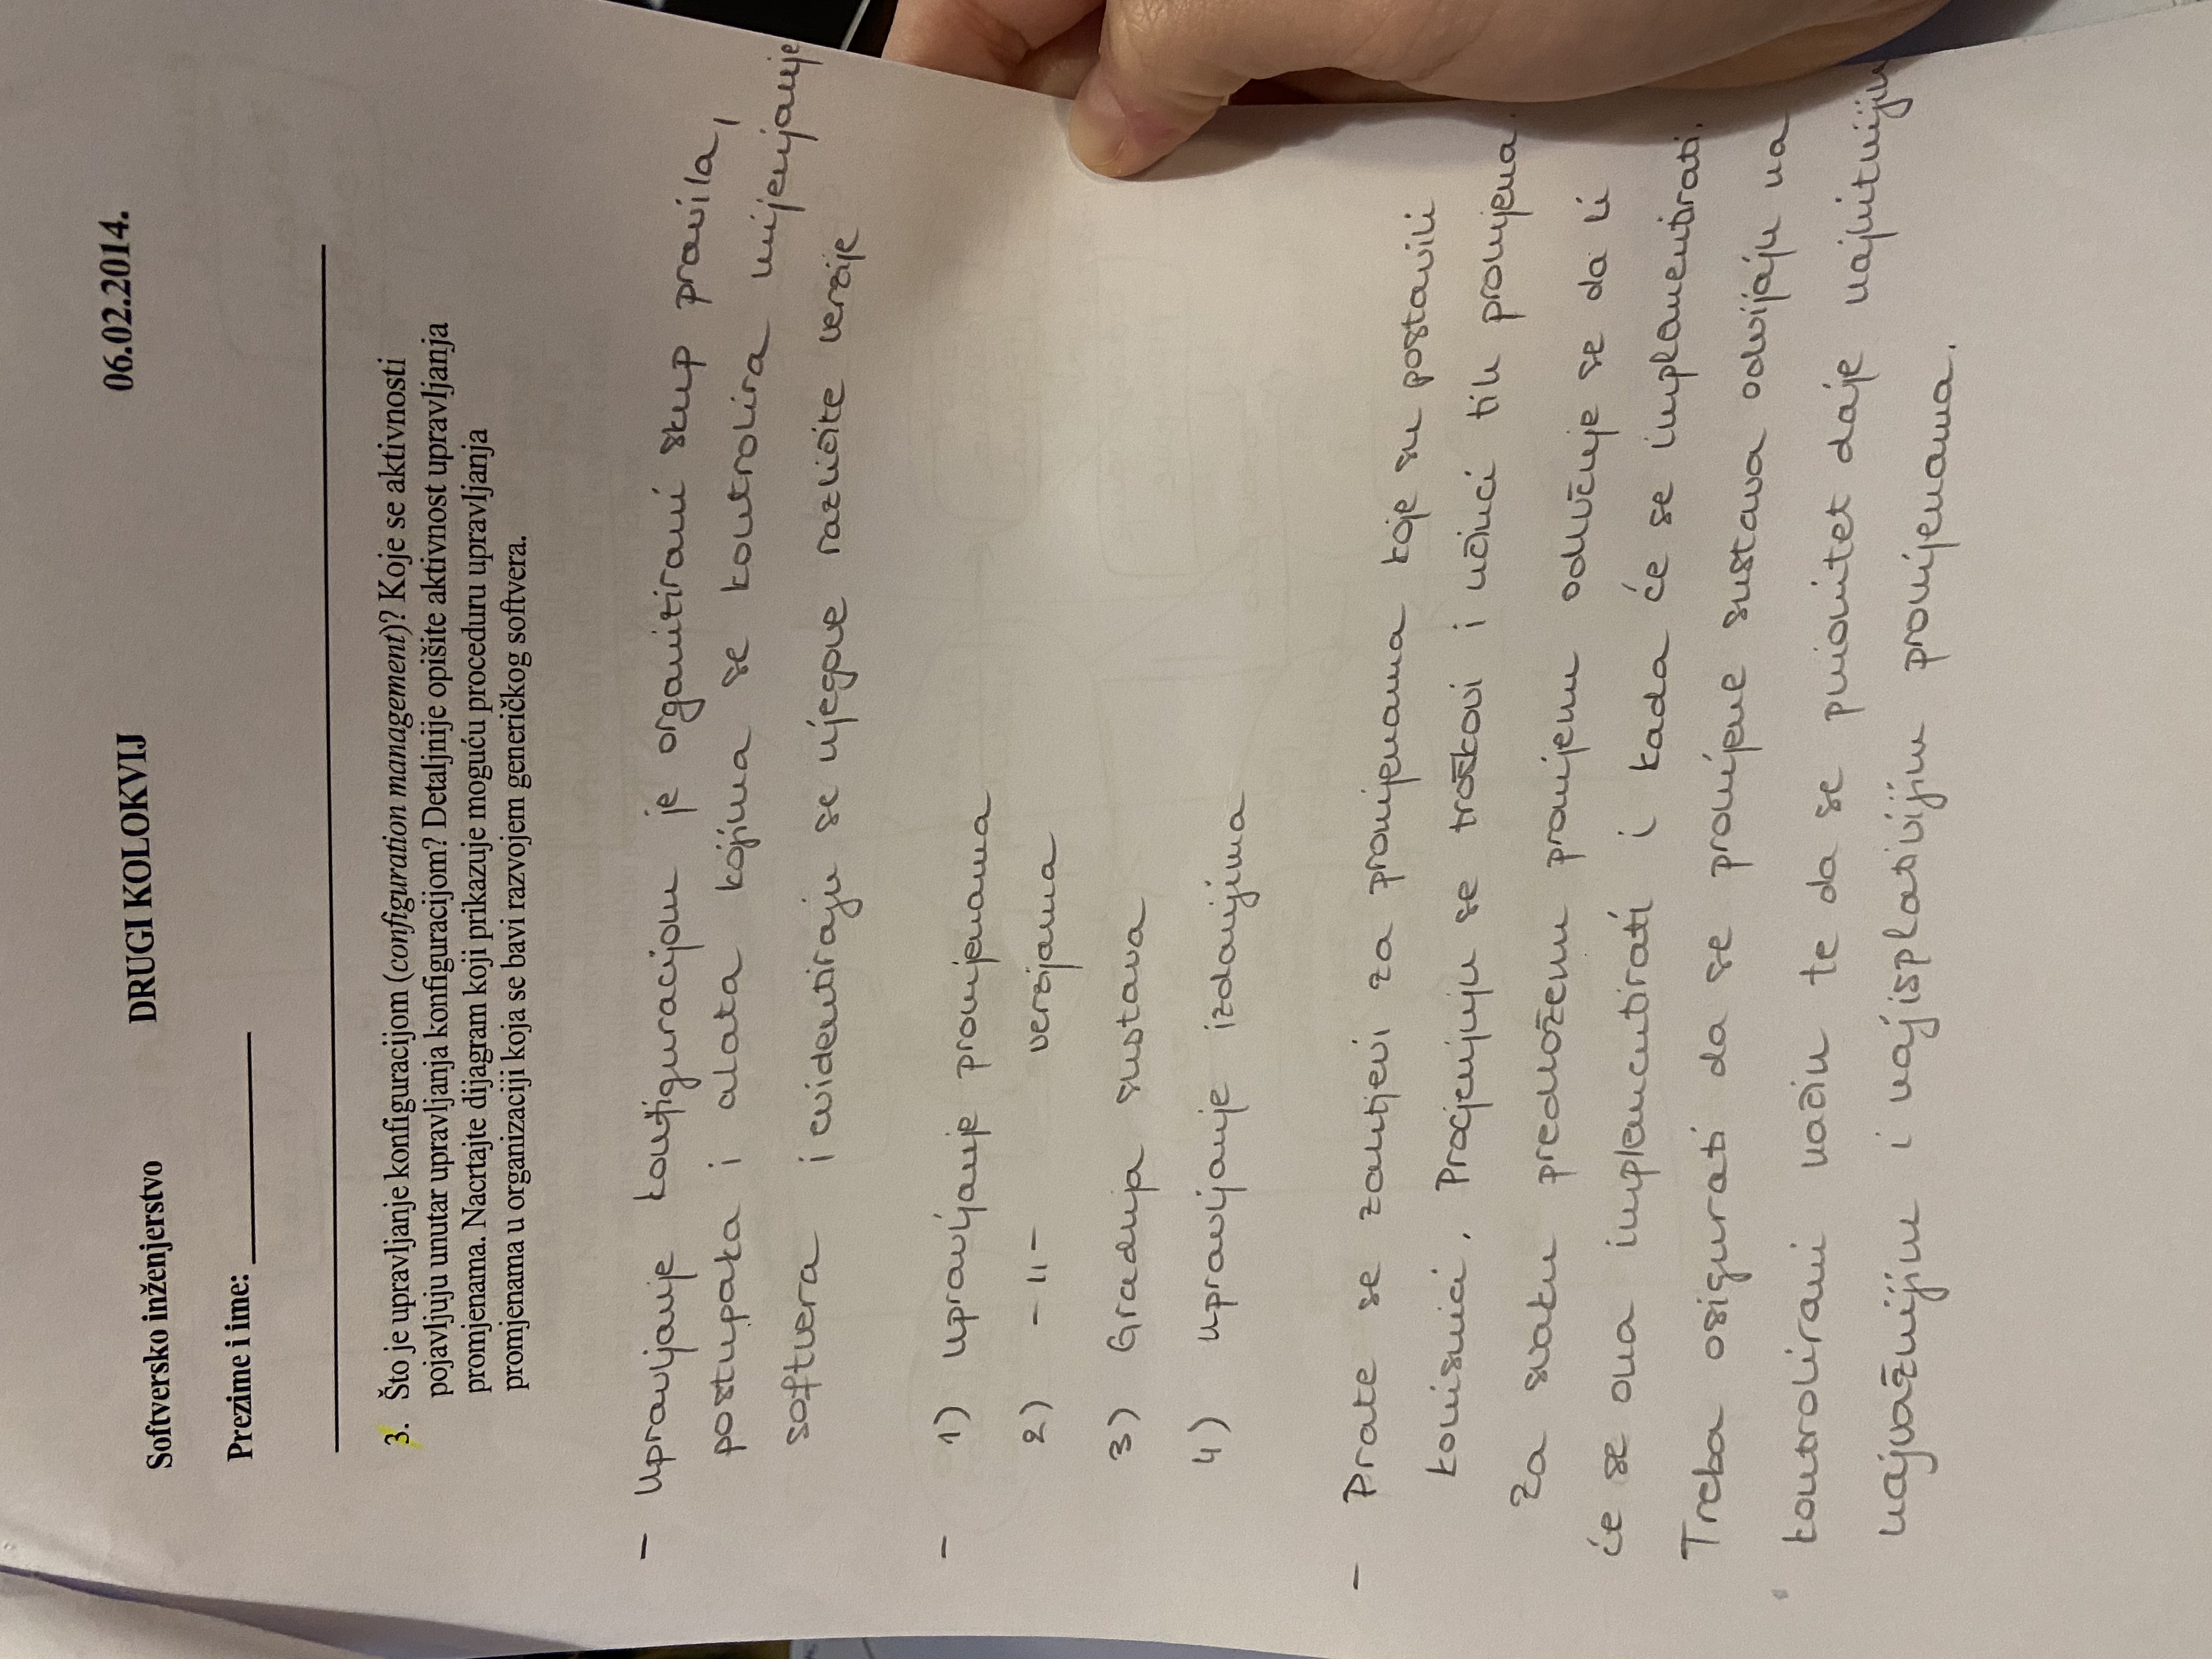 Softversko inženjerstvo DRUGI KOLOKVIJ 06.02.2014.
Prezime i ime: ____________
3. Što je upravljanje konfiguracijom (configuration management)? Koje se aktivnosti
pojavljuju unutar upravljanja konfiguracijom? Detaljnije opišite aktivnost upravljanja
promjenama. Nacrtajte dijagram koji prikazuje moguću proceduru upravljanja
promjenama u organizaciji koja se bavi razvojem generičkog softvera.
- Upravljanje konfiguracijom je organizirani skup pravila,
postupaka i alata kojima se kontrolira mijenjanje
softvera i evidentiraju se njegove različite verzije
- 1) Upravljanje promjenama
2) -11- verzijama
3) Gradnja sustava
4) Upravljanje izdanjima
- Prate se zahtjevi za promjenama koje su postavili
korisnici. Procjenjuju se troškovi i učinci tih promjena.
Za svaku predloženu promjenu odlučuje se da li
će se ona implementirati i kada će se implementirati.
Treba osigurati da se promjene sustava odvijaju na
kontrolirani način te da se prioritet daje najhitnijim
najvažnijim i najisplativijim promjenama.